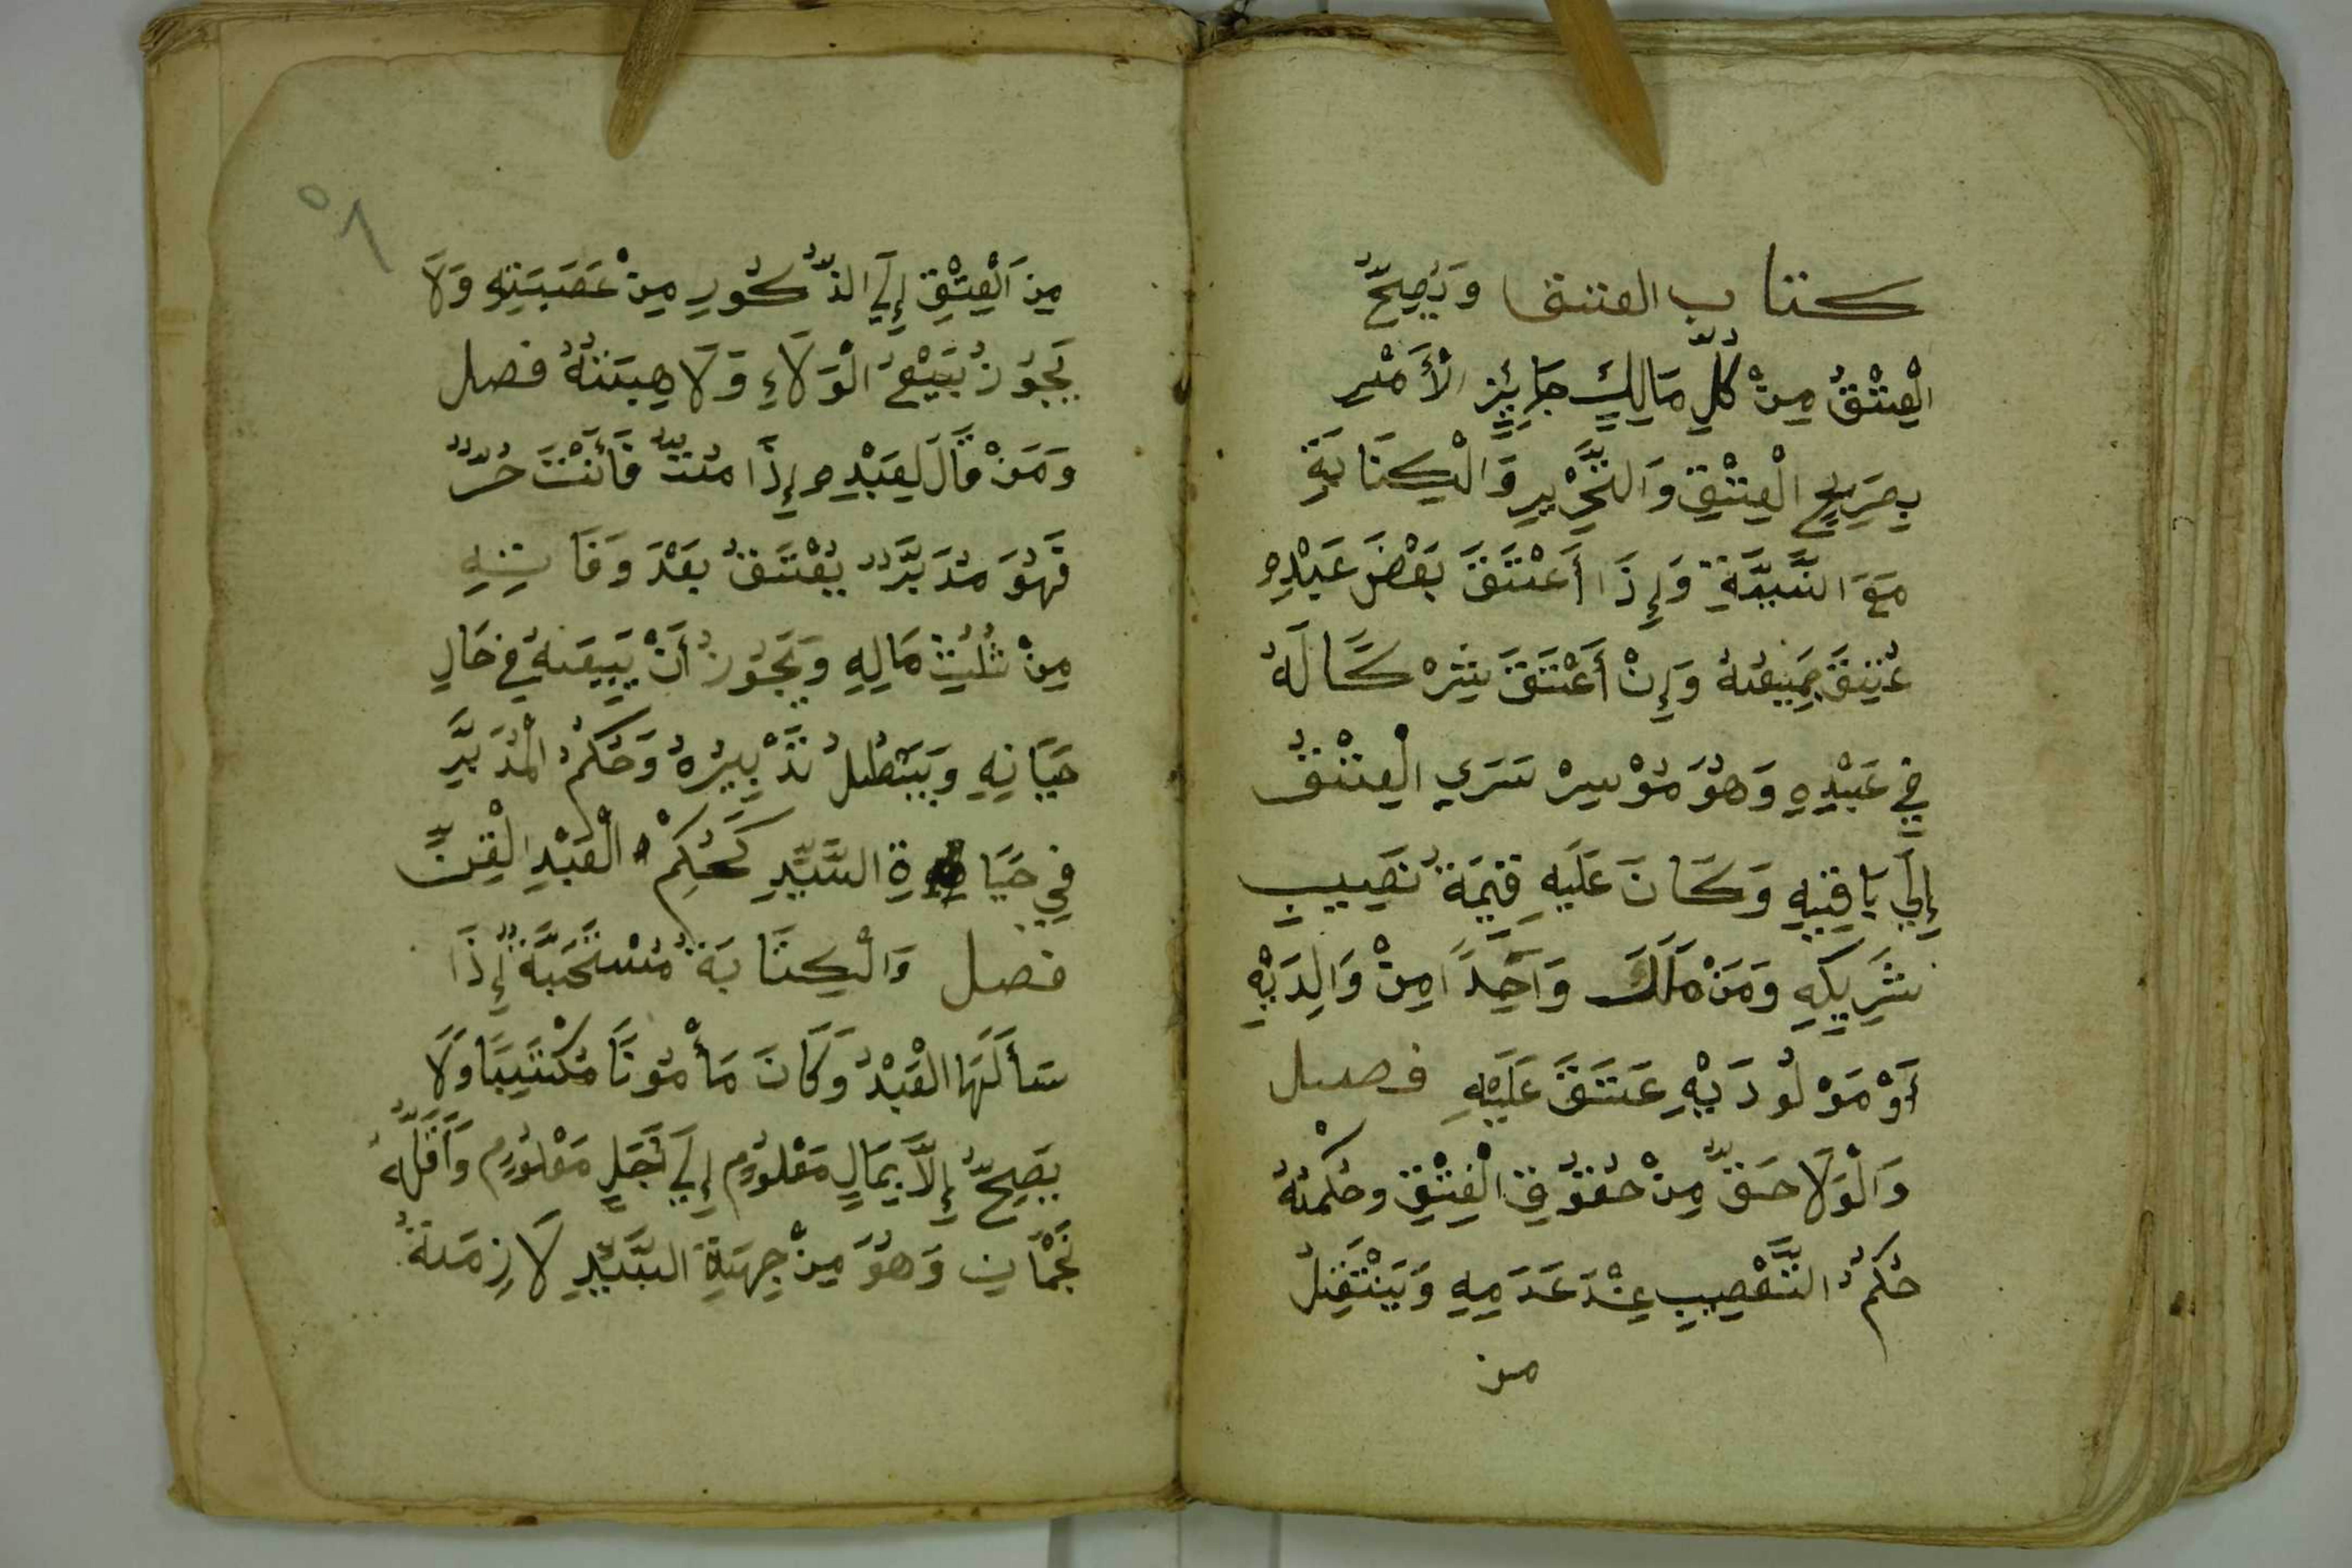 كتاب العتق وَيَصِحُّ
الْعِتْقُ مِنْ كُلِّ مَالِكٍ جَائِزِ الْأَمْرِ
بِصَرِيحِ الْعِتْقِ وَالتَّحْرِيرِ وَالْكِنَايَةِ
مَعَ النِّيَّةِ وَإِذَا أَعْتَقَ بَعْضَ عَبْدِهِ
عُتِقَ جَمِيعُهُ وَإِنْ أَعْتَقَ شِرْكًا لَهُ
فِي عَبْدِهِ وَهُوَ مُوْسِرْ سَرَي الْعِتْقُ
إِلَي بَاقِيهِ وَكَانَ عَلَيهِ قِيمَةُ نَصِيبِ
شَرِيكِهِ وَمَنْ مَلَكَ وَاحِدًا مِنْ وَالِدَيْهِ
أَوْ مَوْلُودَيْهِ عَتَقَ عَلَيْهِ فصل
وَالْوَلَا حَقٌّ مِنْ حُقُوقِ الْعِتْقِ وحُكْمُهُ
حُكْمُ التَّعْصِيبِ عِنْدَ عَدَمِهِ وَيَنْتَقِلُ
من
٥٨
مِنَ الْعِتْقِ إِلَي الذُّكُورِ مِنْ عَصَبَتِهِ وَلَا
يَجُوزُ بَيْعُ الْوَلَاءِ وَلَا هِبَتُهُ فصل
وَمَنْ قَالَ لِعَبْدِهِ إِذَا مُتُّ فَأَنْتَ حُرٌّ
فَهُوَ مُدَبَّرٌ يُعْتَقُ بَعْدَ وَفَاتِهِ
مِنْ ثُلُثِ مَالِهِ وَيَجُوزُ أَنْ يَبِيعَهُ فِي حَالِ
حَيَاتِهِ وَيَبْطُلُ تَدْبِيرُهُ وَحُكْمُ الْمُدَبَّرِ
فِي حَيَاةِ السَّيِّدِ كَحُكْمِ الْعَبْدِ الْقِنِّ
فصل وَالْكِتَابَةُ مُسْتَحَبَّةٌ إِذَا
سَأَلَهَا الْعَبْدُ وَكَانَ مَأْمُونًا مُكْتَسِبًا وَلَا
يَصِحُّ إِلَّا بِمَالٍ مَعْلُومٍ إِلَي أَجَلٍ مَعْلُومٍ وَأَقَلُّهُ
نَجْمَانِ وَهُوَ مِنْ جِهَةِ السَّيِّدِ لَازِمَةٌ